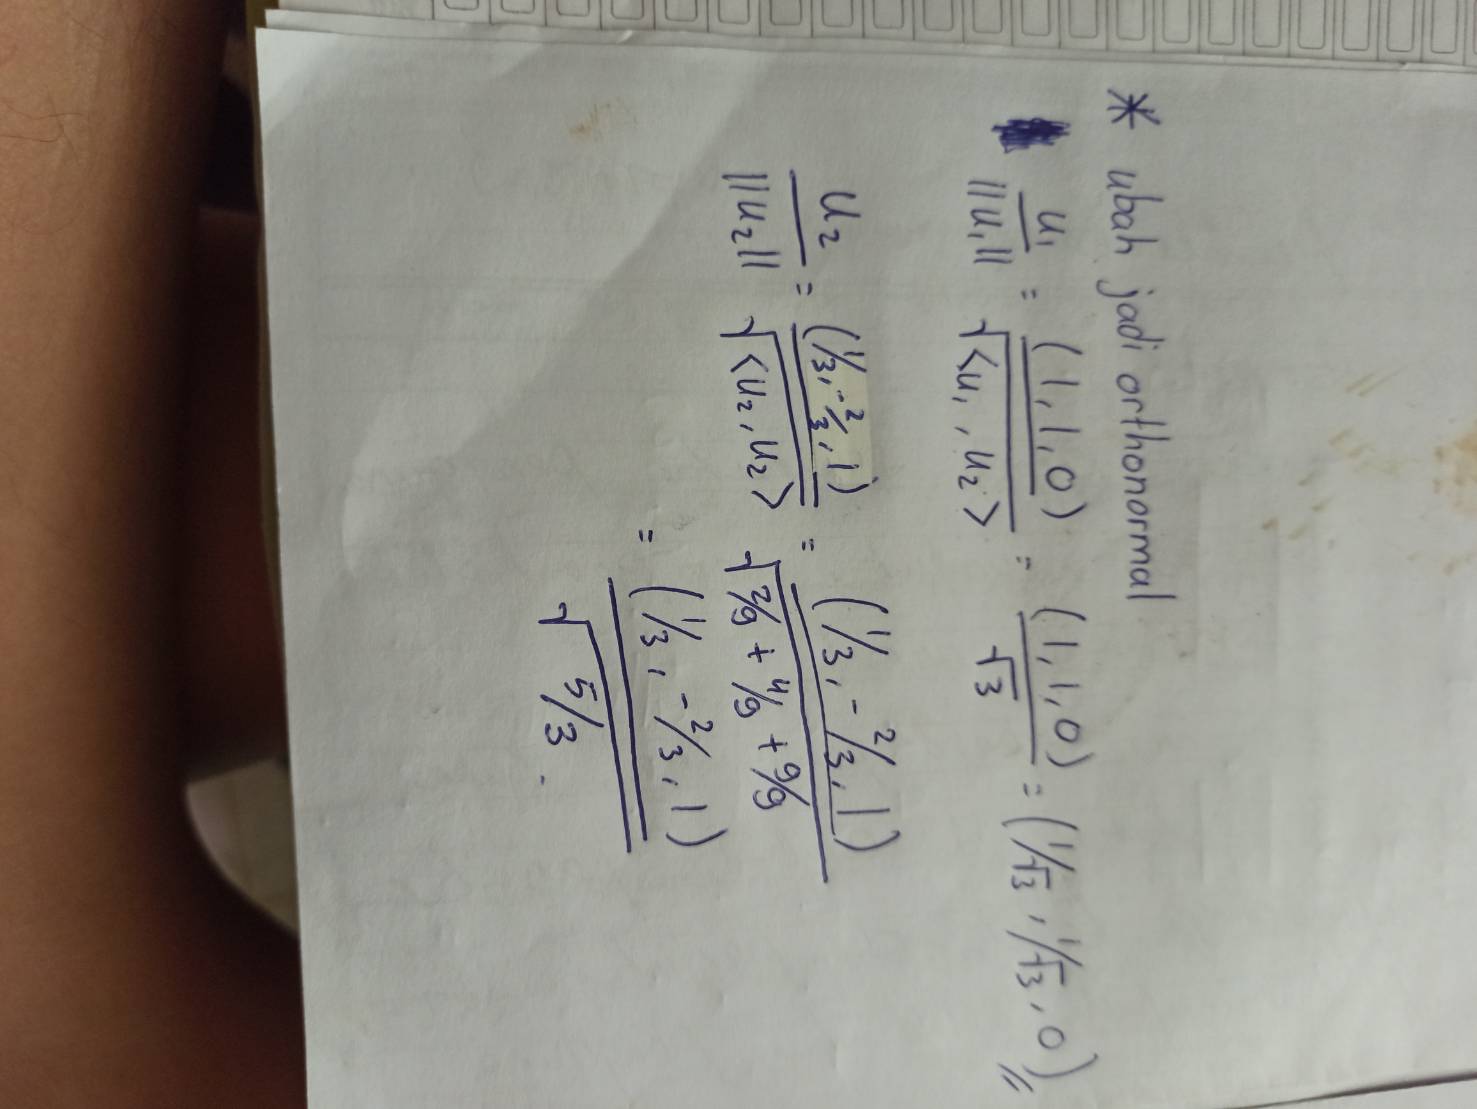 * ubah jadi orthonormal
u₁/||u₁|| = (1,1,0)/√<u₁,u₂> = (1,1,0)/√3 = (1/√3, 1/√3, 0)//
u₂/||u₂|| = (1/3, -2/3, 1)/√<u₂,u₂> = (1/3, -2/3, 1)/√(2/9 + 4/9 + 9/9)
= (1/3, -2/3, 1)/√(5/3).